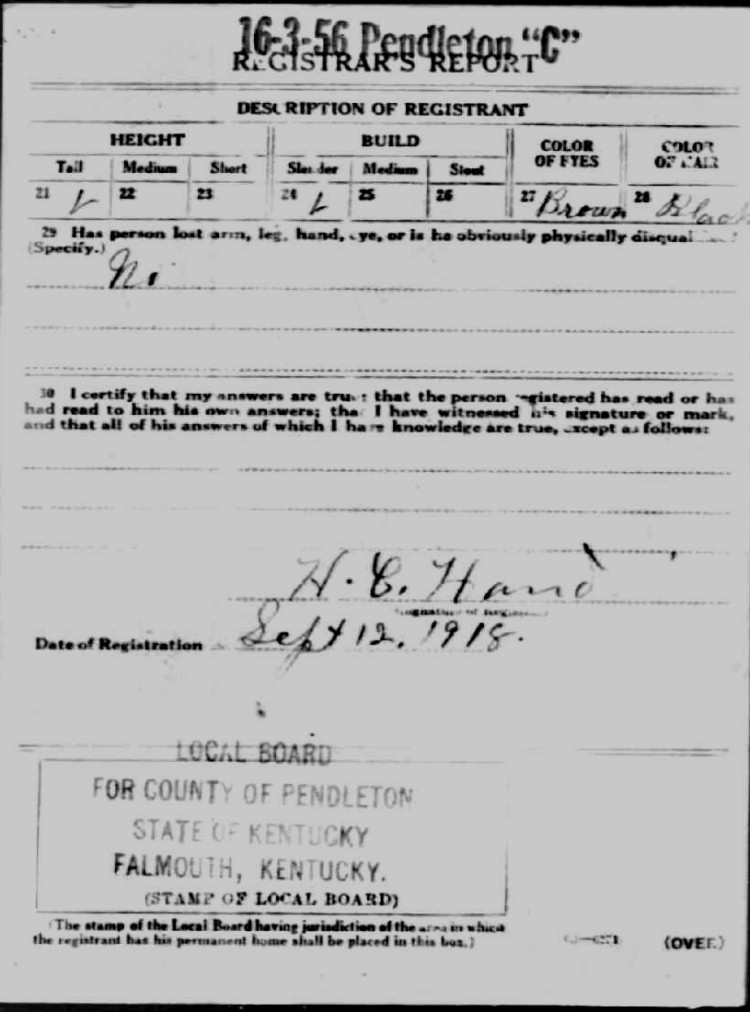 16-3-56 Pendleton "C"
REGISTRAR'S REPORT
DESCRIPTION OF REGISTRANT
HEIGHT BUILD COLOR OF EYES COLOR OF HAIR
Tall Medium Short Slender Medium Stout
21 ✓ 22 23 24 ✓ 25 26 27 Brown 28 Black
29 Has person lost arm, leg, hand, eye, or is he obviously physically disqualified?
(Specify.)
No
30 I certify that my answers are true; that the person registered has read or has
had read to him his own answers; that I have witnessed his signature or mark,
and that all of his answers of which I have knowledge are true, except as follows:
H. C. Hand
(Signature of Registrar)
Date of Registration Sept 12, 1918.
LOCAL BOARD
FOR COUNTY OF PENDLETON
STATE OF KENTUCKY
FALMOUTH, KENTUCKY.
(STAMP OF LOCAL BOARD)
(The stamp of the Local Board having jurisdiction of the area in which
the registrant has his permanent home shall be placed in this box.)
(OVER)